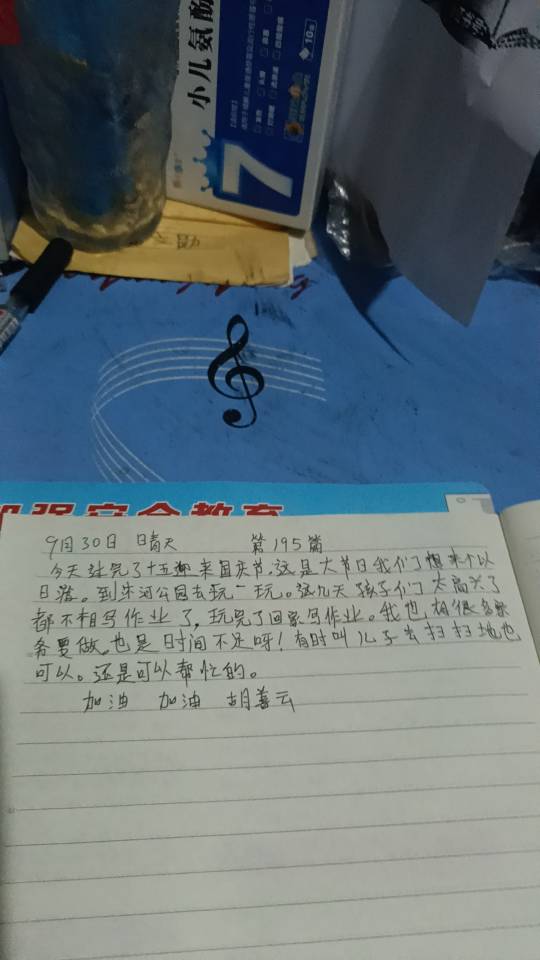 小儿氨酚
7
10
加强安全教育
9月30日 晴天 第195篇
今天过完了十五迎来国庆节,这是大节日我们了想来个以
日落。到朱河公园去玩一玩。这几天孩子们了太高兴了
都不想写作业了,玩完了回家写作业。我也有很多家
务要做。也是时间不足呀!有时叫儿子去扫扫地也
可以。还是可以帮忙的。
加油 加油 胡善云